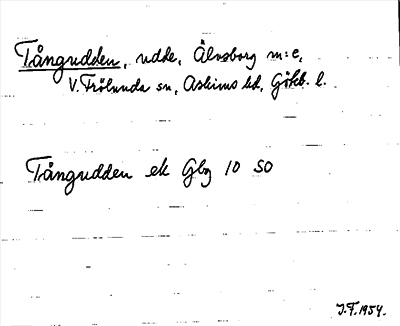 Tångudden, udde, Älvsborg m:e,
V. Frölunda sn, Askims hd, Göteb. l.
Tångudden ek Gbg 10 SO
J.F. 1954.